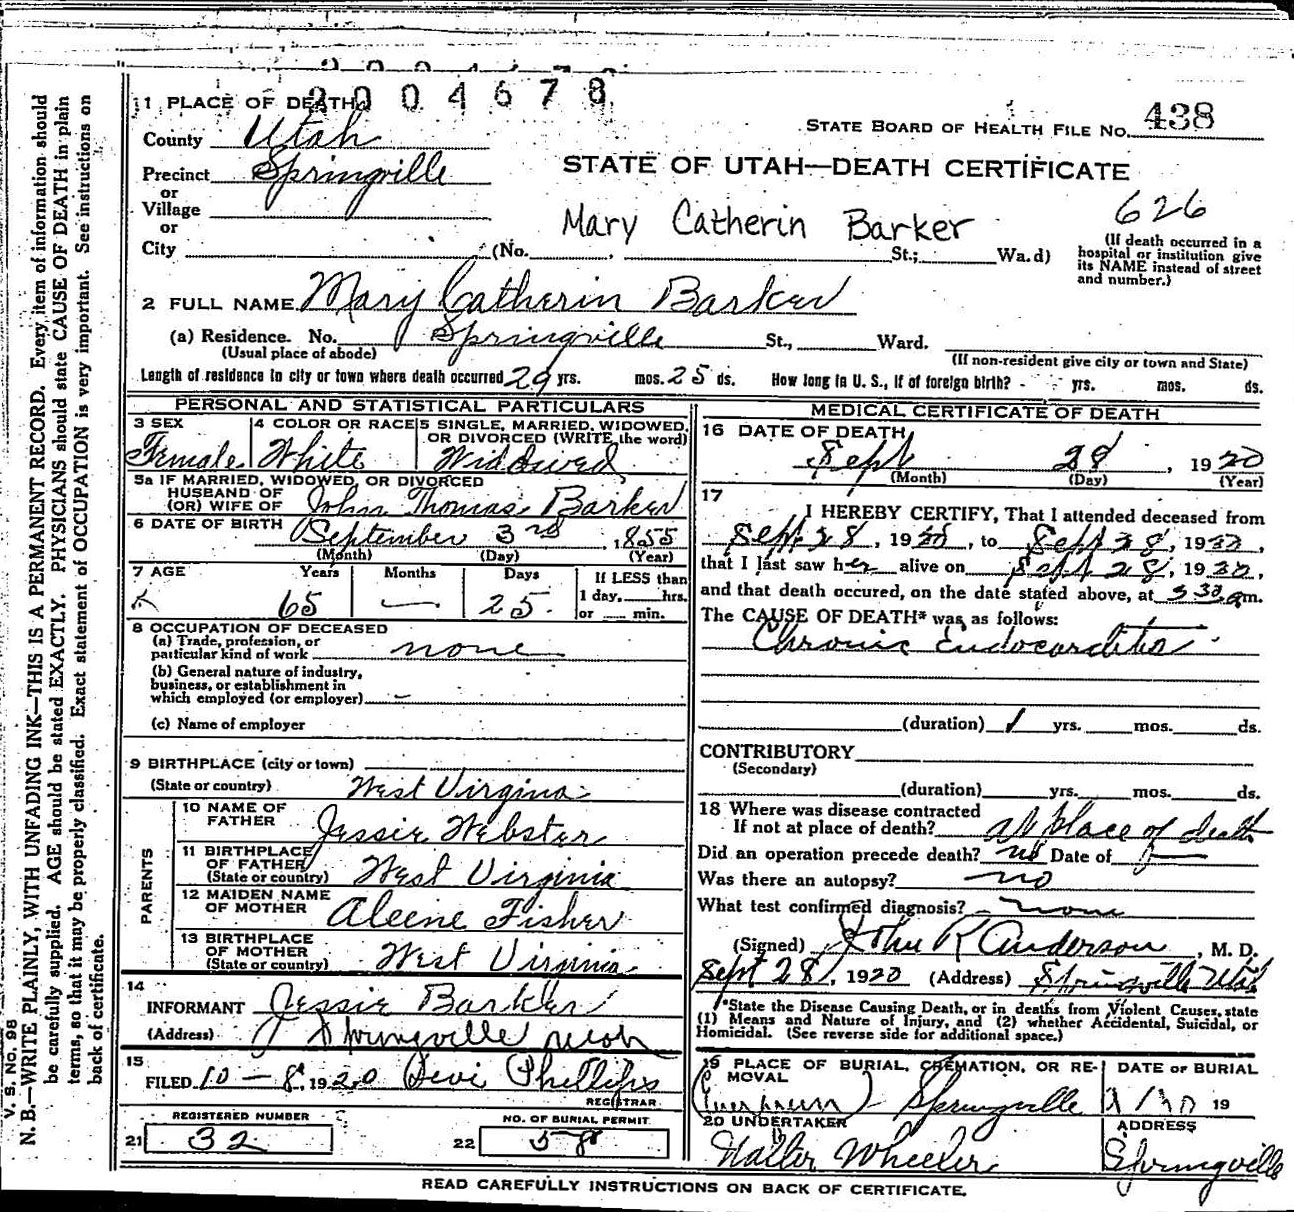 2004678
1 PLACE OF DEATH
County Utah
STATE BOARD OF HEALTH FILE NO. 438
Precinct Springville
STATE OF UTAH—DEATH CERTIFICATE
or
Village
or
Mary Catherin Barker
626
City (No. St.; Wa.d)
(If death occurred in a hospital or institution give its NAME instead of street and number.)
2 FULL NAME Mary Catherin Barker
(a) Residence. No. Springville St., Ward.
(Usual place of abode)
(If non-resident give city or town and State)
Length of residence in city or town where death occurred 29 yrs. mos. 25 ds. How long in U. S., if of foreign birth? - yrs. mos. ds.
PERSONAL AND STATISTICAL PARTICULARS
3 SEX Female
4 COLOR OR RACE White
5 SINGLE, MARRIED, WIDOWED, OR DIVORCED (WRITE the word) Widowed
5a IF MARRIED, WIDOWED, OR DIVORCED
HUSBAND OF
(OR) WIFE OF John Thomas Barker
6 DATE OF BIRTH September 3rd, 1855
(Month) (Day) (Year)
7 AGE Years Months Days If LESS than
65 — 25 1 day, hrs.
or min.
8 OCCUPATION OF DECEASED
(a) Trade, profession, or
particular kind of work none
(b) General nature of industry,
business, or establishment in
which employed (or employer) –
(c) Name of employer
9 BIRTHPLACE (city or town)
(State or country) West Virgina
PARENTS
10 NAME OF FATHER Jessie Webster
11 BIRTHPLACE OF FATHER (State or country) West Virginia
12 MAIDEN NAME OF MOTHER Aleene Fisher
13 BIRTHPLACE OF MOTHER (State or country) West Virginia
14
INFORMANT Jessie Barker
(Address) Springville Utah
15
FILED 10-8, 1920 Devi Phillips
REGISTRAR
REGISTERED NUMBER
21 32
NO. OF BURIAL PERMIT
22 58
MEDICAL CERTIFICATE OF DEATH
16 DATE OF DEATH
Sept 28, 1920
(Month) (Day) (Year)
17
I HEREBY CERTIFY, That I attended deceased from
Sept 28, 1920, to Sept 28, 1920,
that I last saw her alive on Sept 28, 1920,
and that death occured, on the date stated above, at 330 am.
The CAUSE OF DEATH* was as follows:
Chronic Endocarditis
(duration) 1 yrs. mos. ds.
CONTRIBUTORY
(Secondary)
(duration) yrs. mos. ds.
18 Where was disease contracted
If not at place of death? at place of death
Did an operation precede death? no Date of
Was there an autopsy? no
What test confirmed diagnosis? none
(Signed) John R Anderson, M. D.
Sept 28, 1920 (Address) Springville Utah
*State the Disease Causing Death, or in deaths from Violent Causes, state
(1) Means and Nature of Injury, and (2) whether Accidental, Suicidal, or
Homicidal. (See reverse side for additional space.)
19 PLACE OF BURIAL, CREMATION, OR RE-
MOVAL
Springville
DATE OF BURIAL
19
20 UNDERTAKER
Waller Wheeler
ADDRESS
Springville
READ CAREFULLY INSTRUCTIONS ON BACK OF CERTIFICATE.
V. S. NO. 98
N. B.—WRITE PLAINLY, WITH UNFADING INK—THIS IS A PERMANENT RECORD. Every item of information should
be carefully supplied. AGE should be stated EXACTLY. PHYSICIANS should state CAUSE OF DEATH in plain
terms, so that it may be properly classified. Exact statement of OCCUPATION is very important. See instructions on
back of certificate.